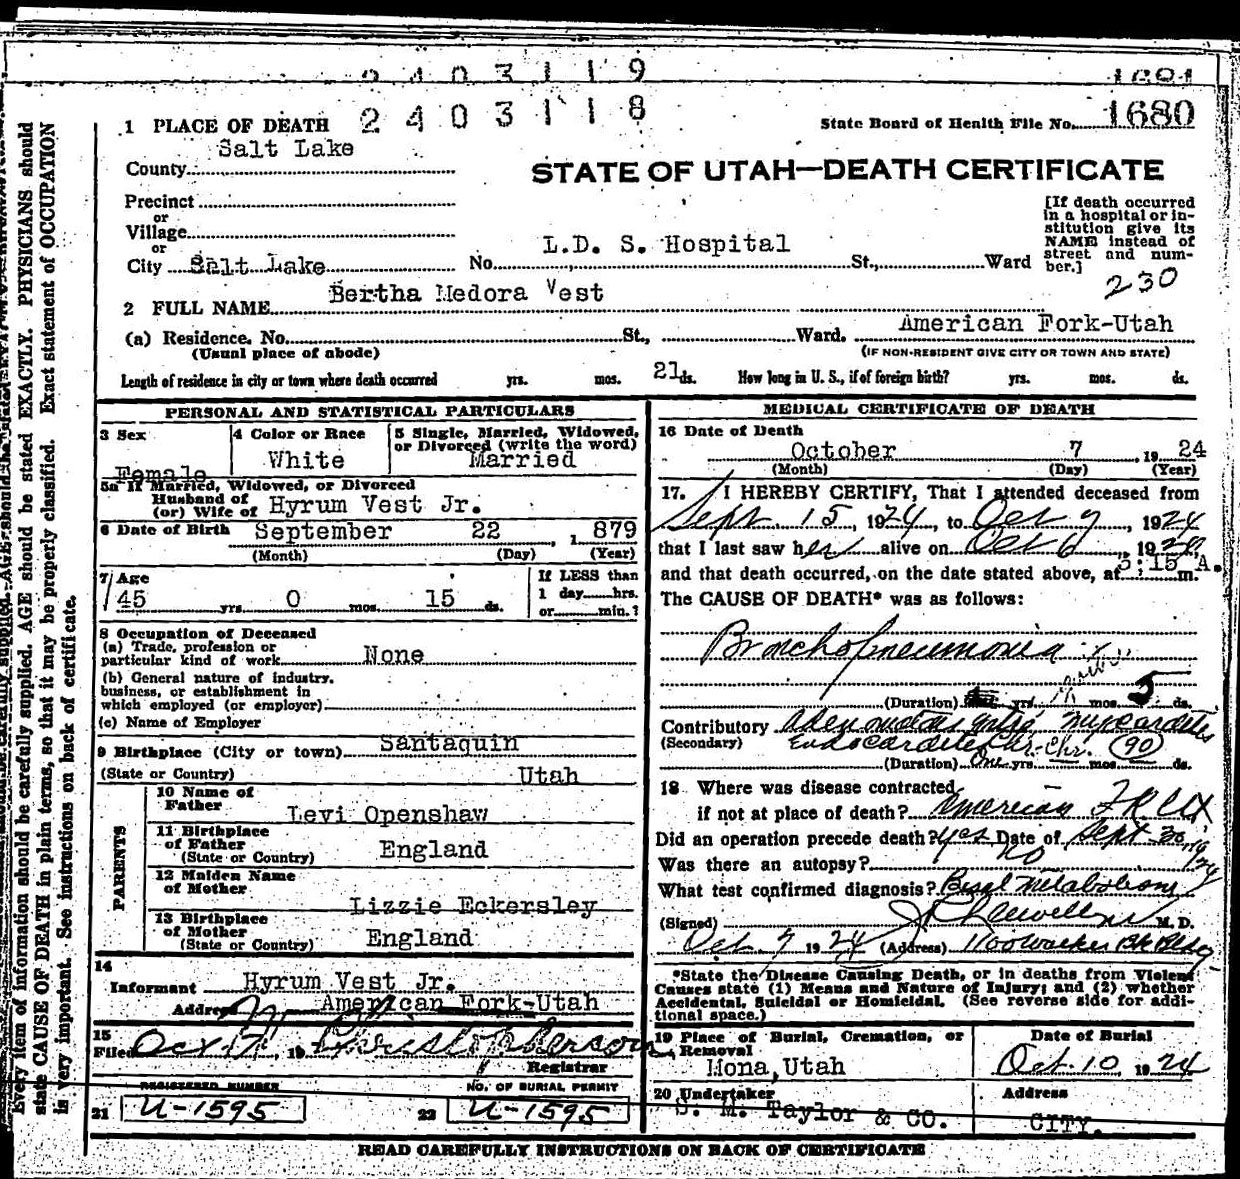 2403119
1681
2403118
State Board of Health File No. 1680
1 PLACE OF DEATH
County Salt Lake
STATE OF UTAH—DEATH CERTIFICATE
Precinct
or
Village
or
City Salt Lake No. L.D. S. Hospital St., Ward
[If death occurred in a hospital or in-
stitution give its
NAME instead of
street and num-
ber.]
230
2 FULL NAME Bertha Medora Vest
(a) Residence. No. St., Ward. American Fork-Utah
(Usual place of abode) (IF NON-RESIDENT GIVE CITY OR TOWN AND STATE)
Length of residence in city or town where death occurred yrs. mos. 21 ds. How long in U. S., if of foreign birth? yrs. mos. ds.
PERSONAL AND STATISTICAL PARTICULARS
3 Sex
Female
4 Color or Race
White
5 Single, Married, Widowed,
or Divorced (write the word)
Married
5a If Married, Widowed, or Divorced
Husband of
(or) Wife of Hyrum Vest Jr.
6 Date of Birth September 22 , 1 879
(Month) (Day) (Year)
7 Age
45 yrs. 0 mos. 15 ds.
If LESS than
1 day hrs.
or min.?
8 Occupation of Deceased
(a) Trade, profession or
particular kind of work None
(b) General nature of industry,
business, or establishment in
which employed (or employer)
(c) Name of Employer
9 Birthplace (City or town) Santaquin
(State or Country) Utah
PARENTS
10 Name of
Father Levi Openshaw
11 Birthplace
of Father
(State or Country) England
12 Maiden Name
of Mother
Lizzie Eckersley
13 Birthplace
of Mother
(State or Country) England
14
Informant Hyrum Vest Jr.
Address American Fork-Utah
15
Filed Oct 7, 19 Christopherson
Registrar
REGISTERED NUMBER
21 U-1595
NO. OF BURIAL PERMIT
22 U-1595
MEDICAL CERTIFICATE OF DEATH
16 Date of Death
October 7 , 19 24
(Month) (Day) (Year)
17. I HEREBY CERTIFY, That I attended deceased from
Sept. 15, 1924, to Oct 7, 1924
that I last saw her alive on Oct 6, 1924,
and that death occurred, on the date stated above, at 3:15 A. m.
The CAUSE OF DEATH* was as follows:
Bronchopneumonia
(Duration) yrs. mos. 5 ds.
Contributory myocarditis
(Secondary) Endocarditis Chr. (90)
(Duration) One yrs. mos. ds.
18 Where was disease contracted
if not at place of death? American
Did an operation precede death? Yes Date of Sept 30, 1924
Was there an autopsy? No
What test confirmed diagnosis? Basal Metabolism
(Signed) M. D.
Oct. 7 1924 (Address) Walker Bk Bldg
*State the Disease Causing Death, or in deaths from Violent
Causes state (1) Means and Nature of Injury; and (2) whether
Accidental, Suicidal or Homicidal. (See reverse side for addi-
tional space.)
19 Place of Burial, Cremation, or
Removal
Mona, Utah
Date of Burial
Oct. 10 1924
20 Undertaker
S. M. Taylor & CO.
Address
CITY.
READ CAREFULLY INSTRUCTIONS ON BACK OF CERTIFICATE
Every item of information should be carefully supplied. AGE should be stated EXACTLY. PHYSICIANS should
state CAUSE OF DEATH in plain terms, so that it may be properly classified. Exact statement of OCCUPATION
is very important. See instructions on back of certificate.